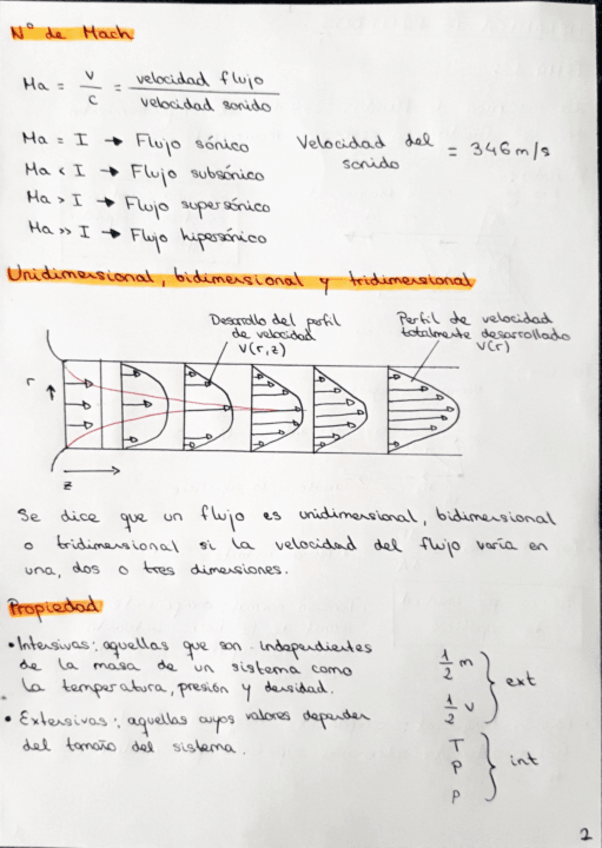 Nº de Mach
Ma = v/c = velocidad flujo / velocidad sonido
Ma = I → Flujo sónico
Velocidad del sonido = 346 m/s
Ma < I → Flujo subsónico
Ma > I → Flujo supersónico
Ma >> I → Flujo hipersónico
Unidimensional, bidimensional y tridimensional
Desarrollo del perfil
de velocidad
V(r,z)
Perfil de velocidad
totalmente desarrollado
V(r)
r
z
Se dice que un flujo es unidimensional, bidimensional
o tridimensional si la velocidad del flujo varía en
una, dos o tres dimensiones.
Propiedad
• Intensivas: aquellas que son independientes
de la masa de un sistema como
la temperatura, presión y densidad.
• Extensivas: aquellas cuyos valores dependen
del tamaño del sistema.
1/2 m
1/2 v
ext
T
P
ρ
int
2